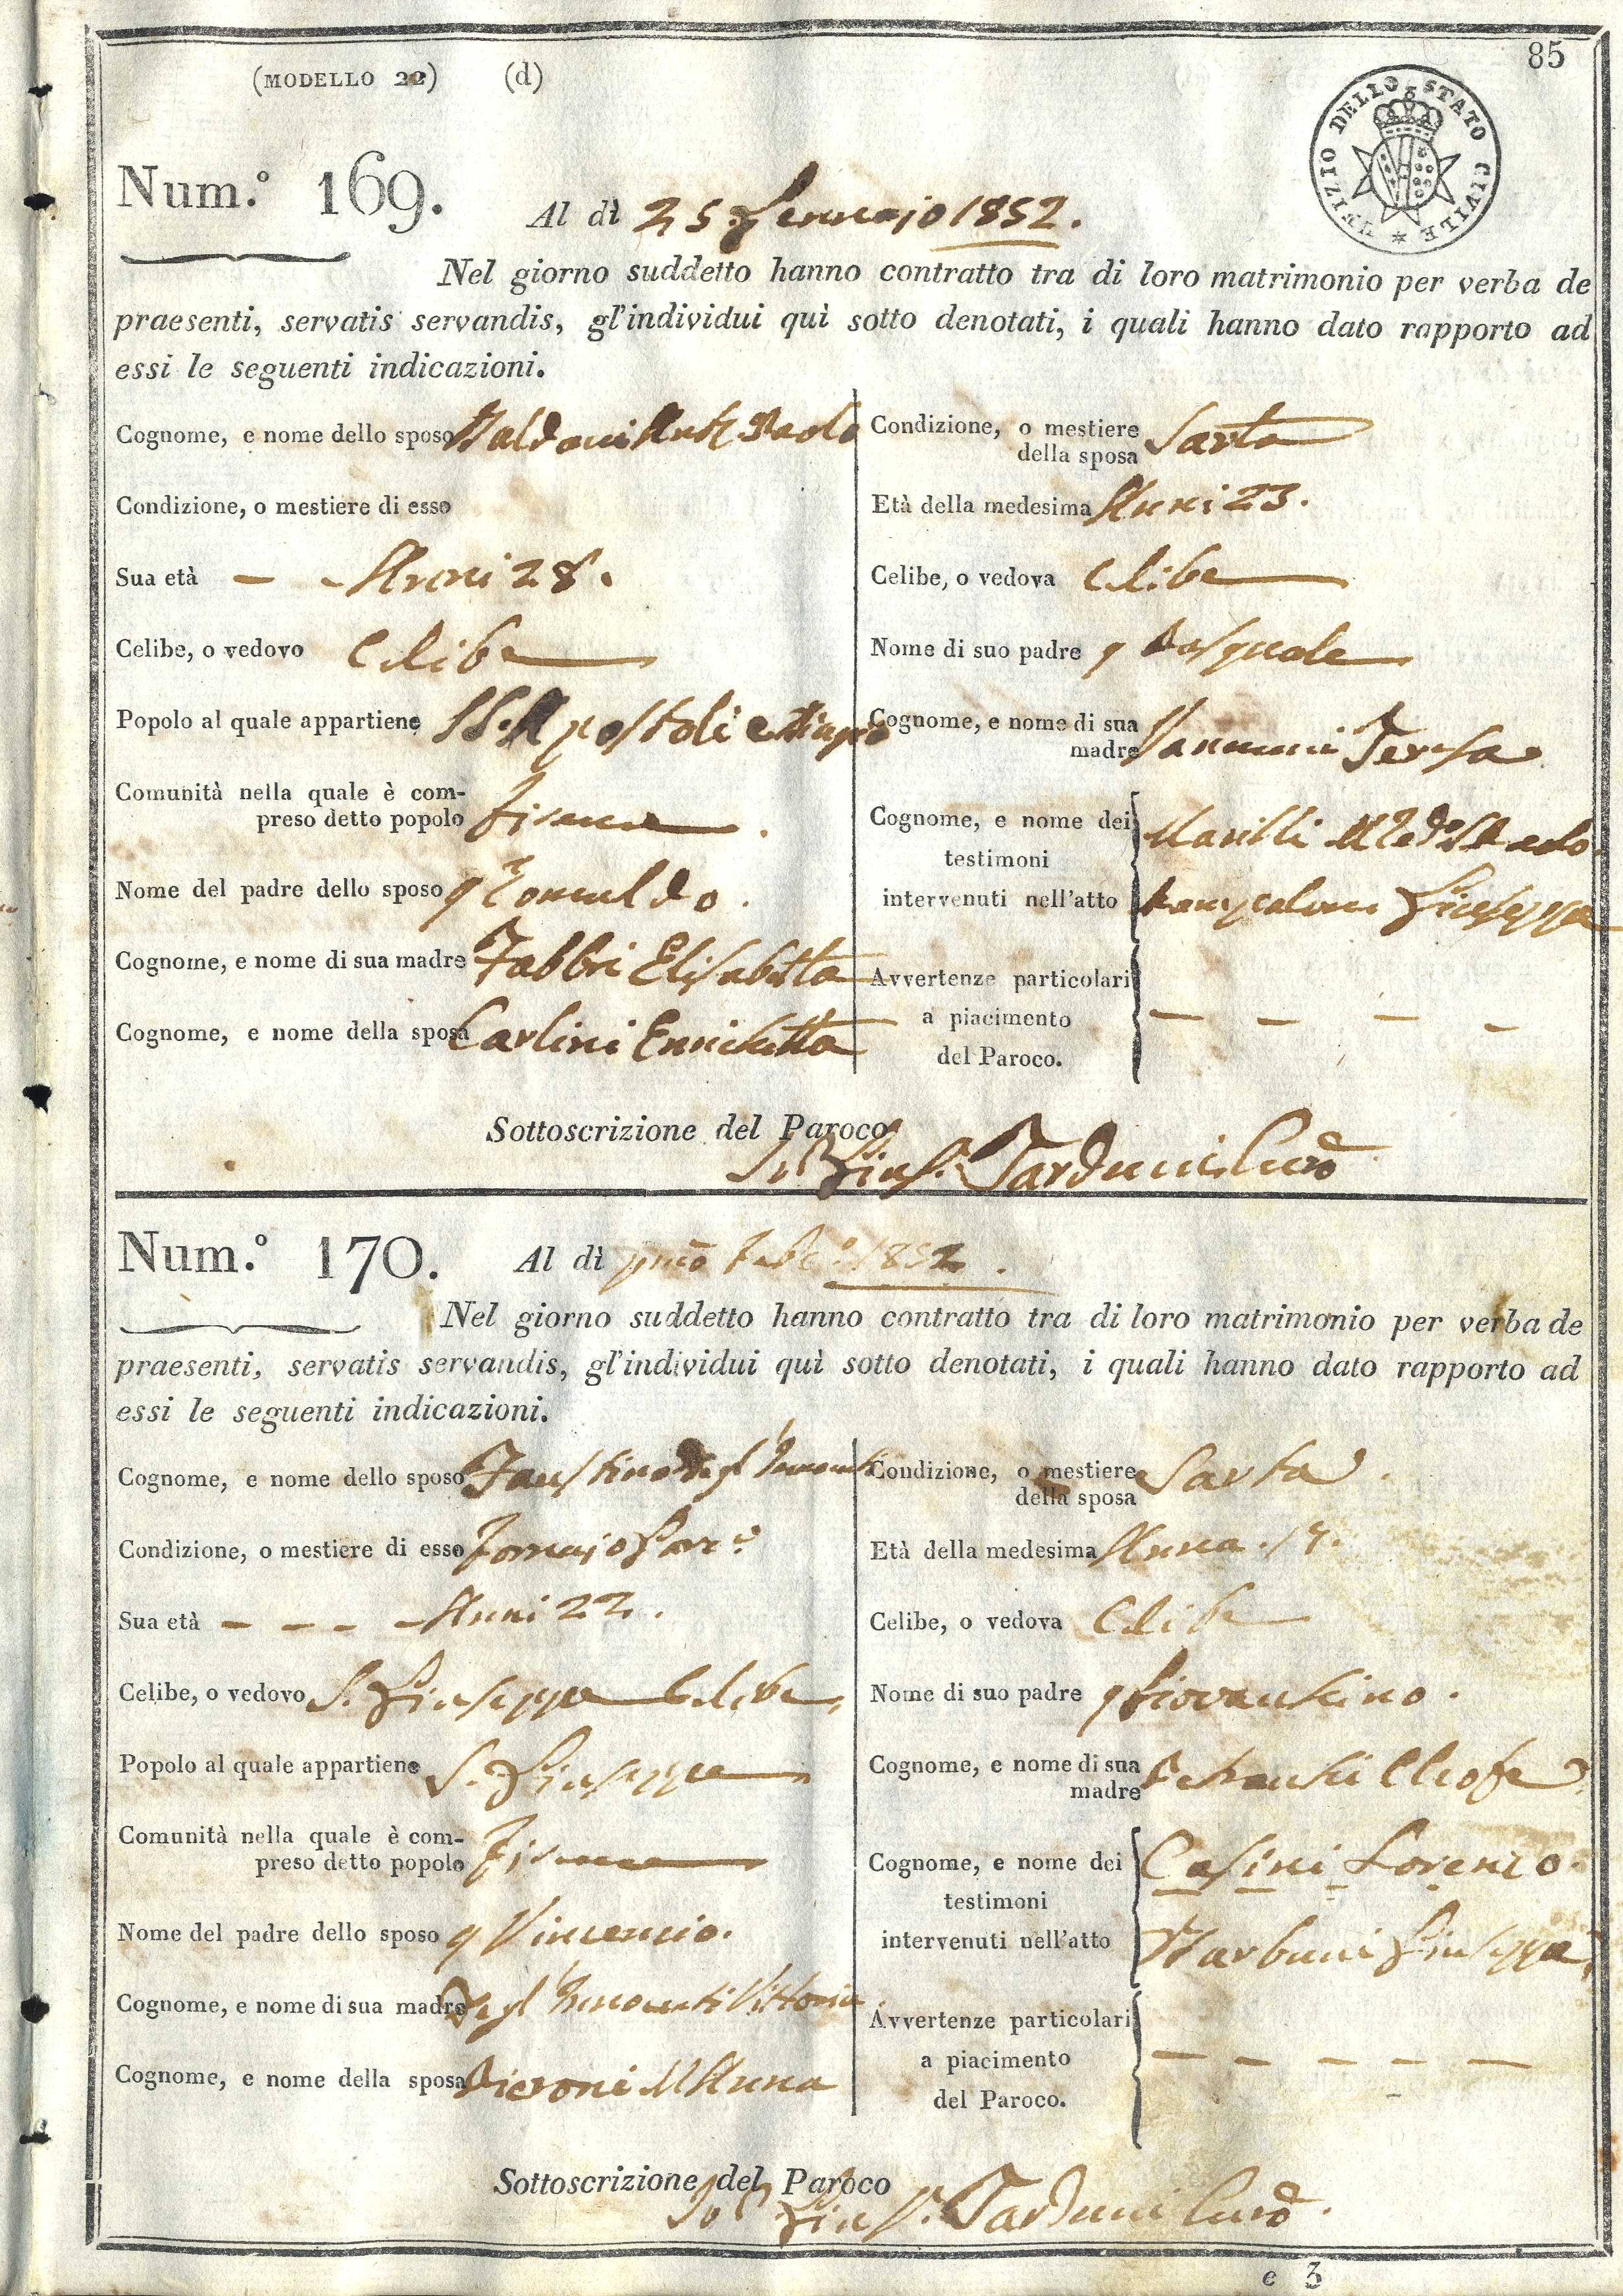 85
(MODELLO 22) (d)
UFIZIO DELLO STATO CIVILE
Num.° 169.
Al dì 25 Gennajo 1852.
Nel giorno suddetto hanno contratto tra di loro matrimonio per verba de
praesenti, servatis servandis, gl'individui quì sotto denotati, i quali hanno dato rapporto ad
essi le seguenti indicazioni.
Cognome, e nome dello sposo Paolo
Condizione, o mestiere di esso
Sua età - - Anni 28.
Celibe, o vedovo Celibe
Popolo al quale appartiene SS. Apostoli e Biagio
Comunità nella quale è com-
preso detto popolo Firenze
Nome del padre dello sposo q Romualdo.
Cognome, e nome di sua madre Fabbri Elisabetta
Cognome, e nome della sposa Carlini Enrichetta
Condizione, o mestiere
della sposa Sarta
Età della medesima Anni 23.
Celibe, o vedova Celibe
Nome di suo padre q Pasquale
Cognome, e nome di sua
madre Vannini Teresa
Cognome, e nome dei
testimoni
intervenuti nell'atto
Giuseppe
Avvertenze particolari
a piacimento
del Paroco.
- - - -
Sottoscrizione del Paroco
Tarduci Curo
Num.° 170.
Al dì pmo Febb.° 1852.
Nel giorno suddetto hanno contratto tra di loro matrimonio per verba de
praesenti, servatis servandis, gl'individui quì sotto denotati, i quali hanno dato rapporto ad
essi le seguenti indicazioni.
Cognome, e nome dello sposo Faustino degl'Innocenti
Condizione, o mestiere di esso Fornajo
Sua età - - - Anni 22.
Celibe, o vedovo S. Giuseppe Celibe
Popolo al quale appartiene S. Giuseppe
Comunità nella quale è com-
preso detto popolo Firenze
Nome del padre dello sposo q Vincenzio.
Cognome, e nome di sua madre Degl'Innocenti Vittoria
Cognome, e nome della sposa Pieroni M Anna
Condizione, o mestiere
della sposa Sarta
Età della medesima
Celibe, o vedova Celibe
Nome di suo padre q Giovacchino.
Cognome, e nome di sua
madre Cleofe
Cognome, e nome dei
testimoni
intervenuti nell'atto
Casini Lorenzo
Giuseppe
Avvertenze particolari
a piacimento
del Paroco.
- - - - -
Sottoscrizione del Paroco
Tarduci Curo
e 3